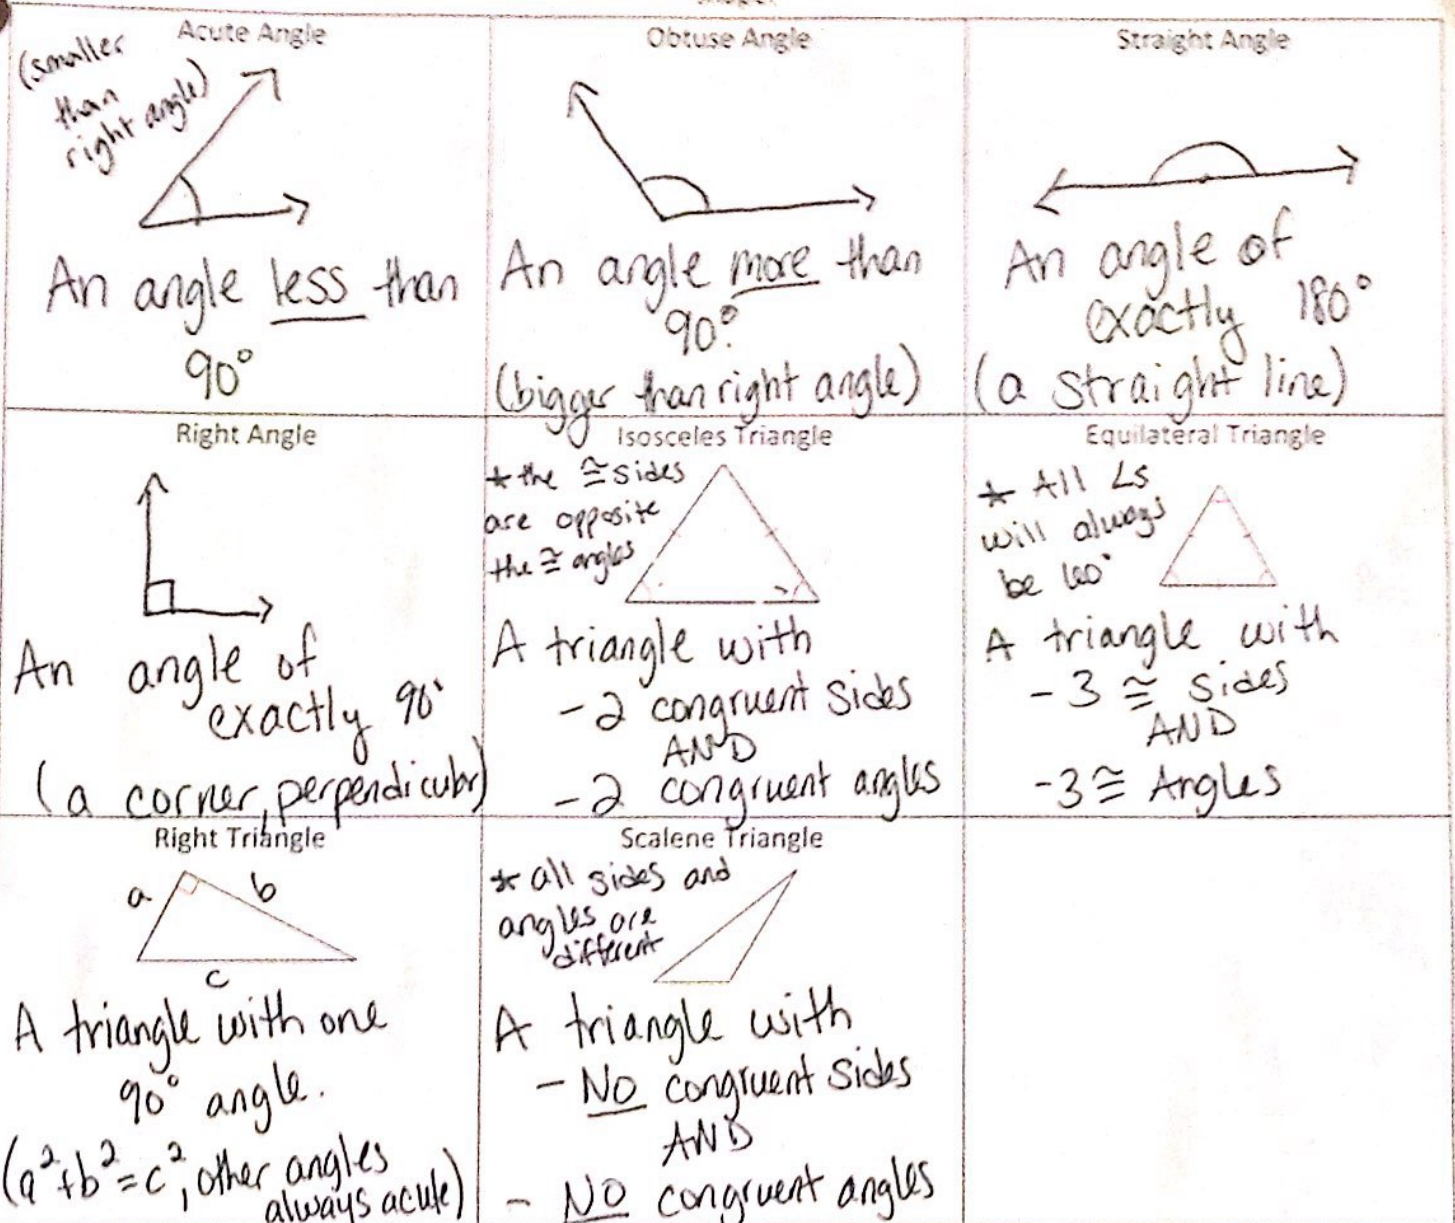 Acute Angle
(smaller
than
right angle)
An angle less than
90°
Obtuse Angle
An angle more than
90°.
(bigger than right angle)
Straight Angle
An angle of
exactly 180°
(a straight line)
Right Angle
An angle of
exactly 90°
(a corner, perpendicular)
Isosceles Triangle
* the ≅ sides
are opposite
the ≅ angles
A triangle with
- 2 congruent sides
AND
- 2 congruent angles
Equilateral Triangle
* All ∠s
will always
be 60°
A triangle with
- 3 ≅ sides
AND
- 3 ≅ Angles
Right Triangle
a b
c
A triangle with one
90° angle.
(a²+b²=c², other angles
always acute)
Scalene Triangle
* all sides and
angles are
different
A triangle with
- NO congruent sides
AND
- NO congruent angles